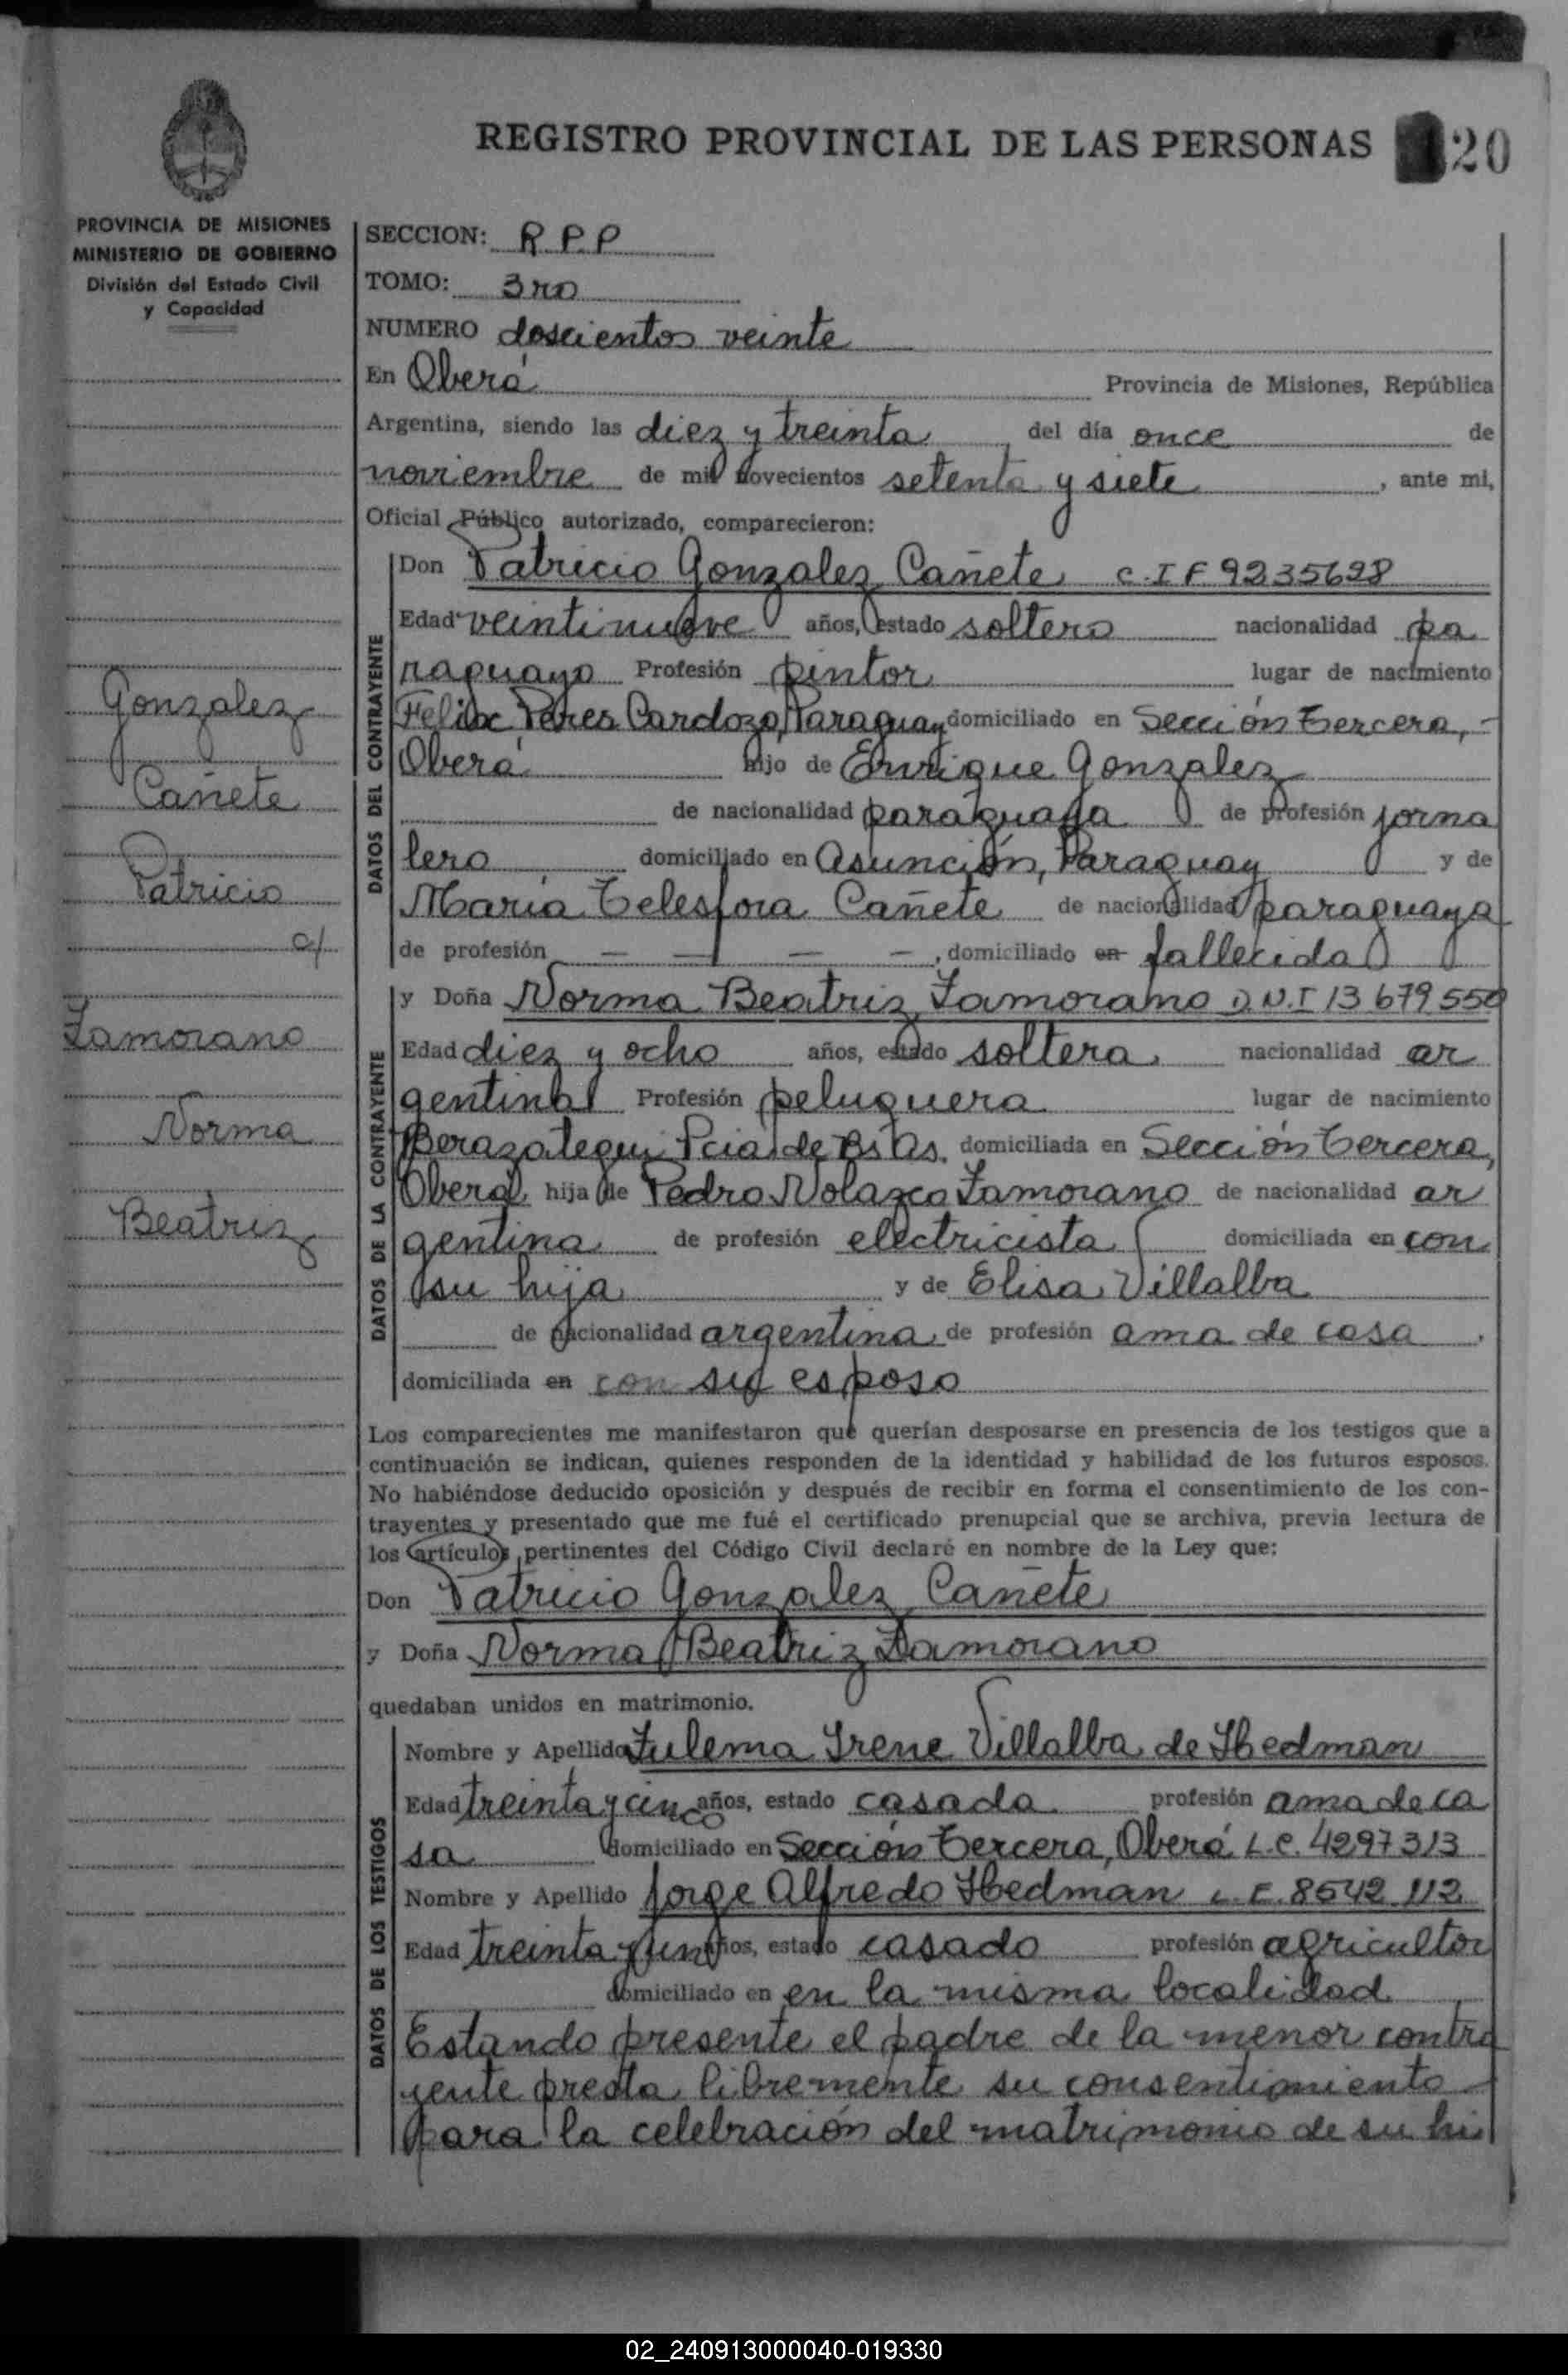 REGISTRO PROVINCIAL DE LAS PERSONAS 20
PROVINCIA DE MISIONES
MINISTERIO DE GOBIERNO
División del Estado Civil
y Capacidad
Gonzalez
Cañete
Patricio
c/
Zamorano
Norma
Beatriz
SECCION: R.P.P
TOMO: 3ro
NUMERO doscientos veinte
En Oberá Provincia de Misiones, República
Argentina, siendo las diez y treinta del día once de
noviembre de mil novecientos setenta y siete, ante mi,
Oficial Público autorizado, comparecieron:
DATOS DEL CONTRAYENTE
Don Patricio Gonzalez Cañete C.I F 9235698
Edad veintinueve años, estado soltero nacionalidad pa
raguayo Profesión pintor lugar de nacimiento
Felix Peres Cardozo, Paraguay domiciliado en Sección Tercera, -
Oberá hijo de Enrique Gonzalez
de nacionalidad paraguaya de profesión jorna
lero domiciliado en Asunción, Paraguay y de
María Telesfora Cañete de nacionalidad paraguaya
de profesión — — — —, domiciliado en fallecida
DATOS DE LA CONTRAYENTE
y Doña Norma Beatriz Zamorano D.N.I 13 679 550
Edad diez y ocho años, estado soltera nacionalidad ar
gentina Profesión peluquera lugar de nacimiento
Berazategui Pcia de Bs As. domiciliada en Sección Tercera,
Oberá hija de Pedro Nolazco Zamorano de nacionalidad ar
gentina de profesión electricista domiciliada en con
su hija y de Elisa Villalba
de nacionalidad argentina de profesión ama de casa.
domiciliada en con su esposo
Los comparecientes me manifestaron que querían desposarse en presencia de los testigos que a
continuación se indican, quienes responden de la identidad y habilidad de los futuros esposos.
No habiéndose deducido oposición y después de recibir en forma el consentimiento de los con-
trayentes y presentado que me fué el certificado prenupcial que se archiva, previa lectura de
los artículos pertinentes del Código Civil declaré en nombre de la Ley que:
Don Patricio Gonzalez Cañete
y Doña Norma Beatriz Zamorano
quedaban unidos en matrimonio.
DATOS DE LOS TESTIGOS
Nombre y Apellido Zulema Irene Villalba de Hedman
Edad treinta y cinco años, estado casada profesión ama de ca
sa domiciliado en Sección Tercera, Oberá L.C. 4297313
Nombre y Apellido Jorge Alfredo Hedman L.E. 8542 112
Edad treinta y un años, estado casado profesión agricultor
domiciliado en en la misma localidad
Estando presente el padre de la menor contra
yente presta libremente su consentimiento
para la celebración del matrimonio de su hi
02_240913000040-019330